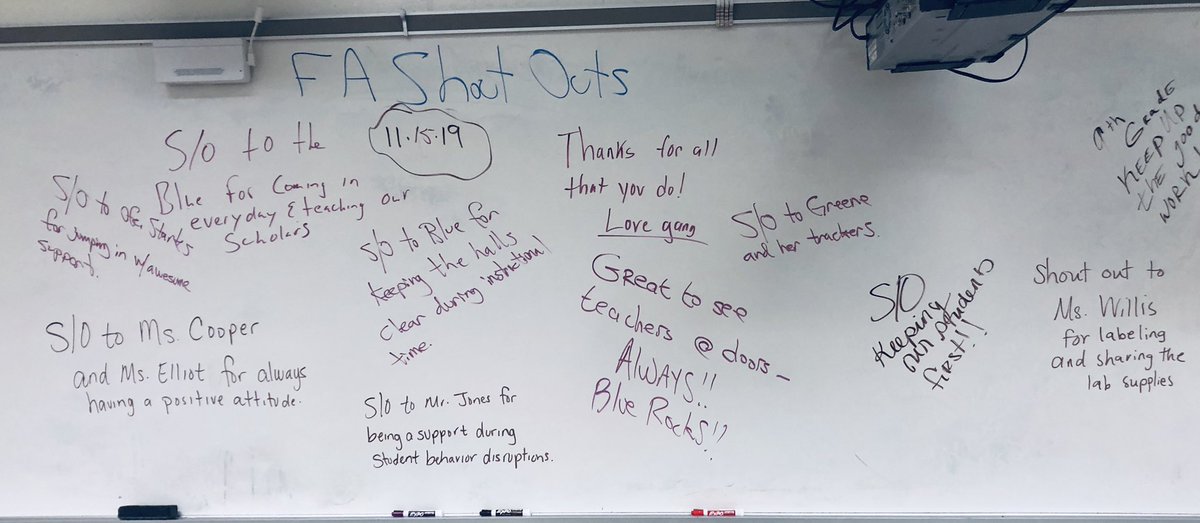 FA Shout Outs
11.15.19
S/O to the
Blue for Coming in
everyday & teaching our
Scholars
S/O to Ofc. Starks
for jumping in w/awesome
support.
S/O to Ms. Cooper
and Ms. Elliot for always
having a positive attitude.
S/O to Blue for
Keeping the halls
clear during instructional
time.
S/O to Mr. Jones for
being a support during
Student behavior disruptions.
Thanks for all
that you do!
Love gang
S/O to Greene
and her trackers.
Great to see
teachers @ doors -
ALWAYS!!
Blue Rocks!!
S/O
Keeping
our students
first!!
9th Grade
KEEP UP
the good
WORK!
Shout out to
Ms. Willis
for labeling
and sharing the
lab supplies
EXPO
EXPO
EXPO